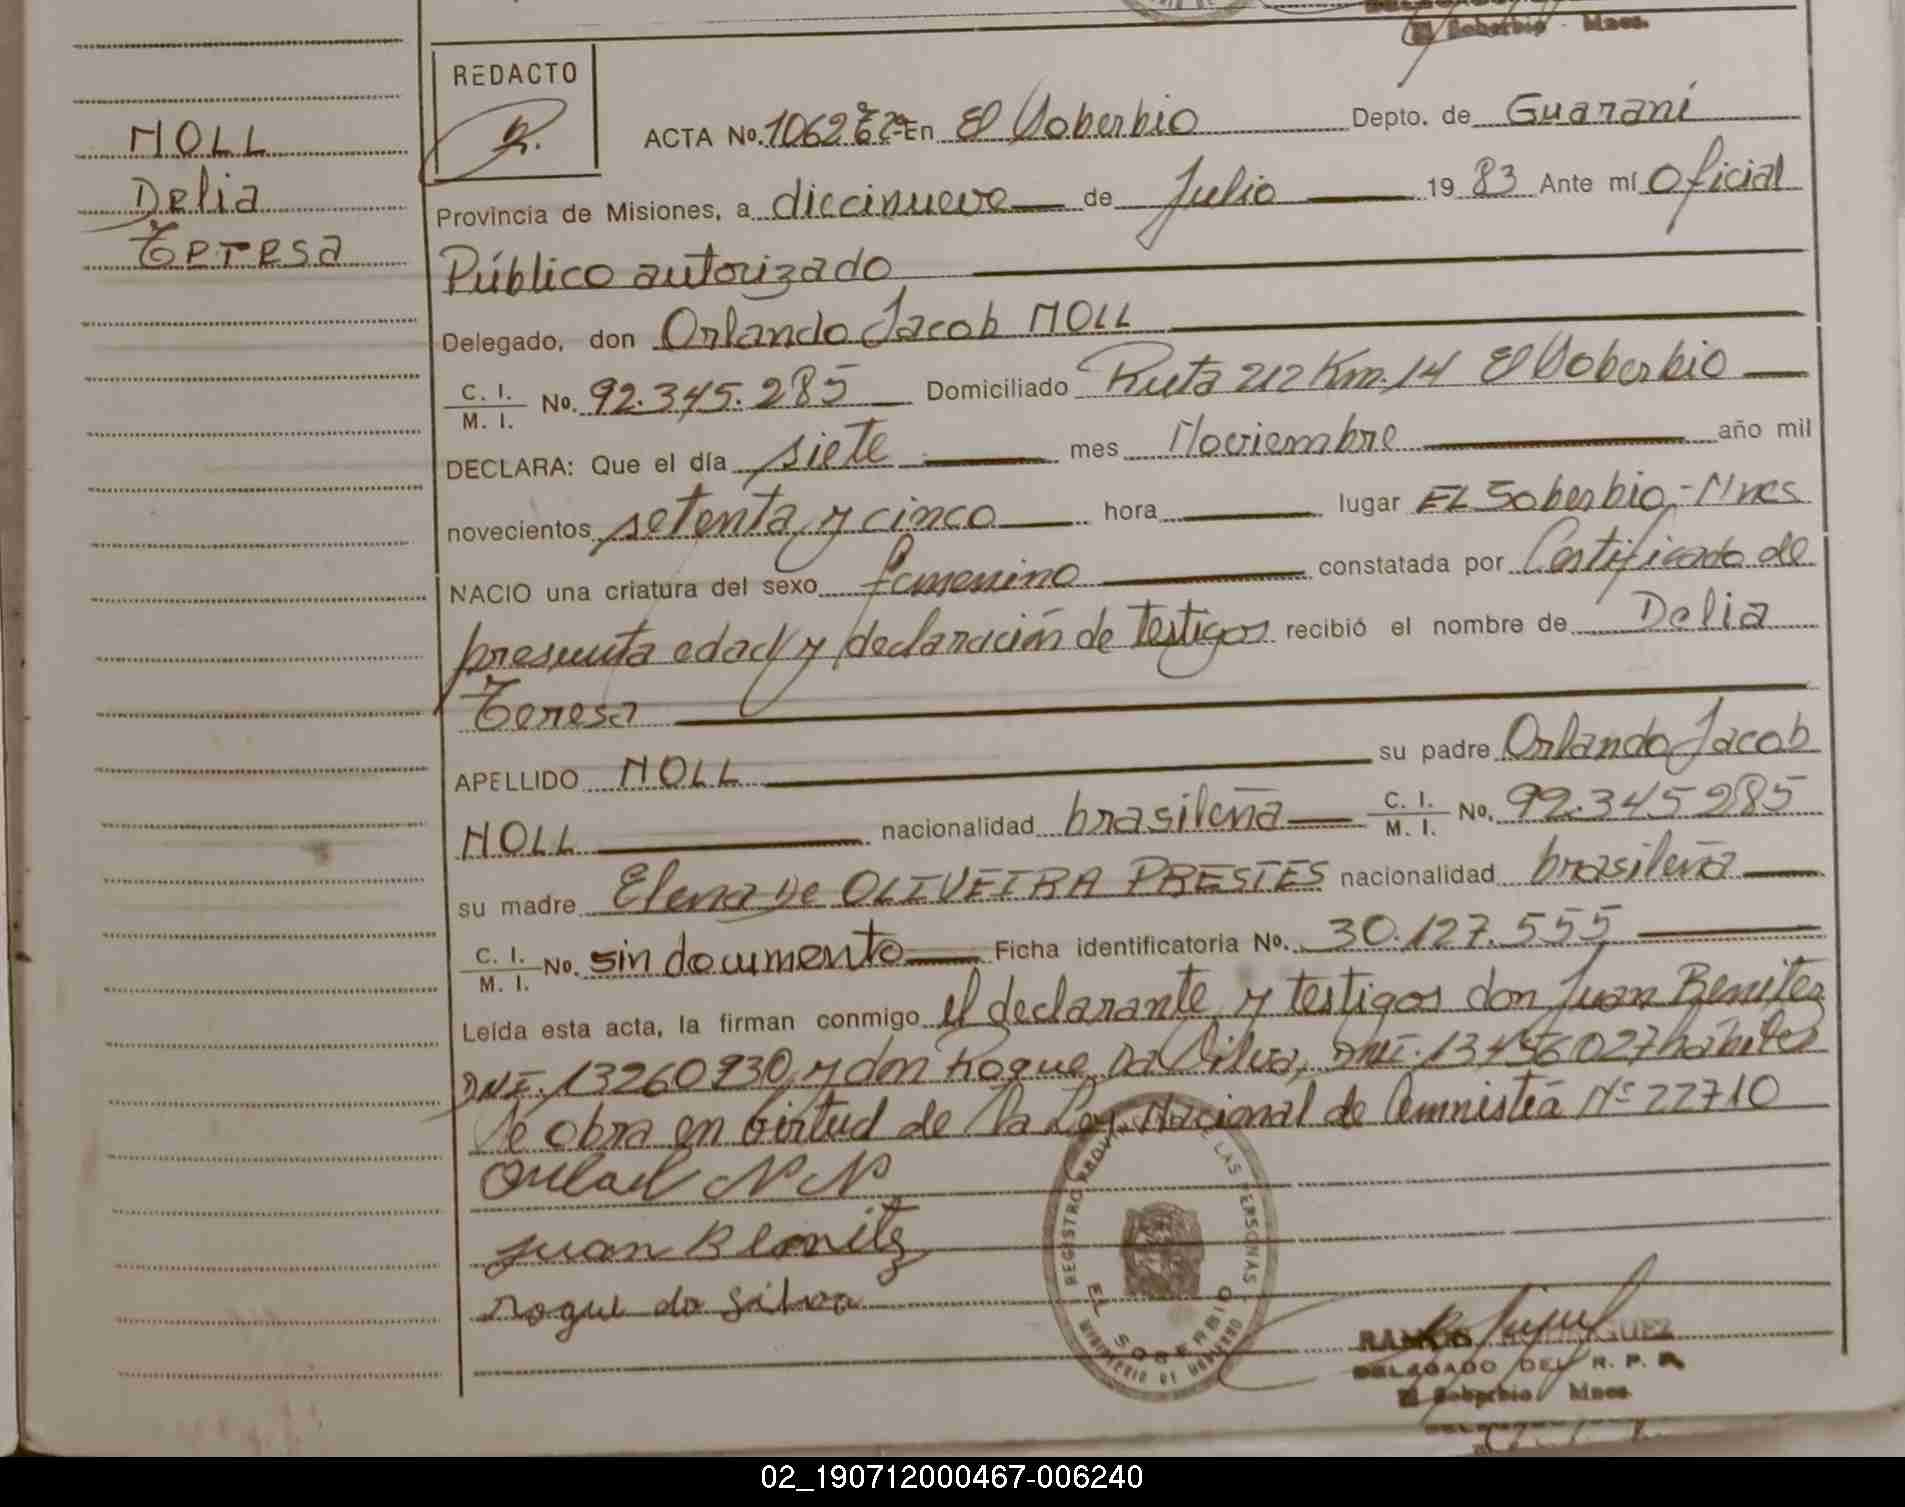 El Soberbio - Mnes.
REDACTO
MOLL
Delia
Teresa
ACTA No. 1062 En El Soberbio Depto. de Guaraní
Provincia de Misiones, a diecinueve de Julio 19 83 Ante mí Oficial
Público autorizado
Delegado, don Orlando Jacob MOLL
C. I. / M. I. No. 92.345.285 Domiciliado Ruta 212 Km. 14 El Soberbio
DECLARA: Que el día siete mes Noviembre año mil
novecientos setenta y cinco hora lugar EL Soberbio,- Mnes
NACIO una criatura del sexo femenino constatada por Certificado de
presunta edad y declaración de testigos recibió el nombre de Delia
Teresa
APELLIDO MOLL su padre Orlando Jacob
MOLL nacionalidad brasileña C. I. / M. I. No. 92.345285
su madre Elena De OLIVEIRA PRESTES nacionalidad brasileña
C. I. / M. I. No. sin documento Ficha identificatoria No. 30.127.555
Leída esta acta, la firman conmigo el declarante y testigos don Juan Benitez
DNI. 13260930, y don Roque Da Silva, DNI. 13456027 habiles
Se obra en virtud de la Ley Nacional de Amnistía Nº 22710
Juan Benitz
roque da Silva
REGISTRO PROV. LAS PERSONAS
EL SOBERBIO
MINISTERIO DE GOBIERNO
DELEGADO DEL R. P. P.
El Soberbio Mnes.
02_190712000467-006240